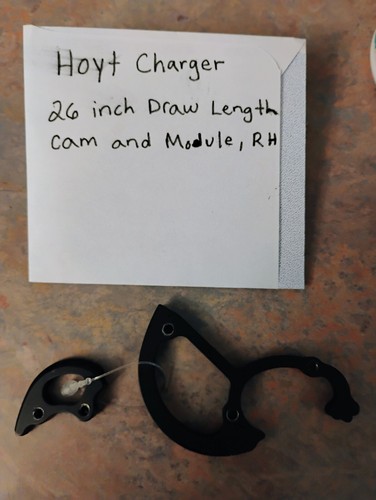 Hoyt Charger
26 inch Draw Length
Cam and Module, RH